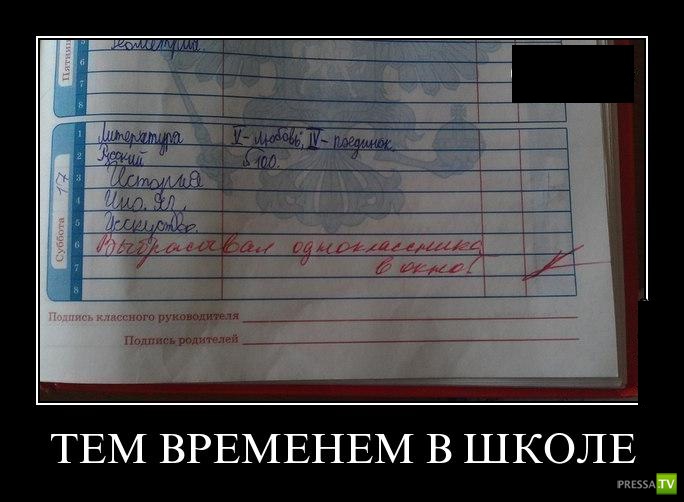 Геометрия.
Пятниц
5
6
7
8
Суббота 17
1 Литература V - любовь, IV - поединок.
2 Русский §100.
3 История
4 Ино. яз.
5 Искуство.
6 Выбрасывал одноклассника
7 в окно!
8
Подпись классного руководителя
Подпись родителей
ТЕМ ВРЕМЕНЕМ В ШКОЛЕ
PRESSA.TV